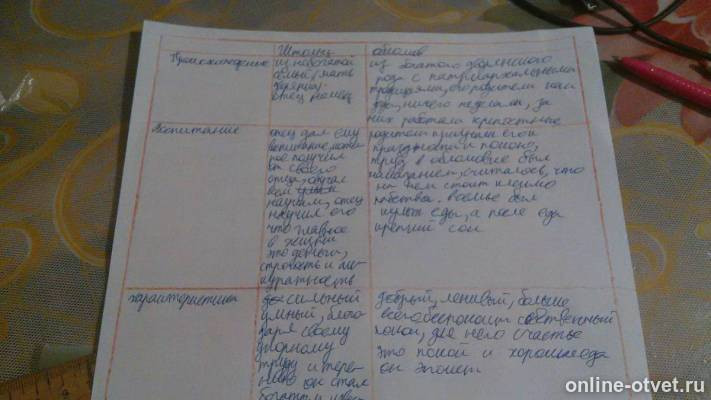 Штольц
Обломов
Происхождение
из небогатой
семьи (мать
дворянка,
отец немец
из богатого дворянского
рода с патриархальными
традициями, его родители
ничего не делали, за
них работали крепостные
Воспитание
отец дал ему
воспитание, кото
рое получил
от своего
отца, обучал
всем
наукам, отец
научил его
что главное
в жизни
это деньги,
строгость и ак
куратность
родители приучали его к
праздности и покою,
труд в обломовке был
наказанием, считалось, что
на нем стоит клеймо
рабства. в семье был
культ еды, а после еды
крепкий сон
характеристика
сильный
умный, благо
даря своему
упорному
труду и терпе
нию он стал
богатым и
добрый, ленивый, больше
всего беспокоит собственный
покой, для него счастье
это покой и хорошая еда
он эгоист
online-otvet.ru